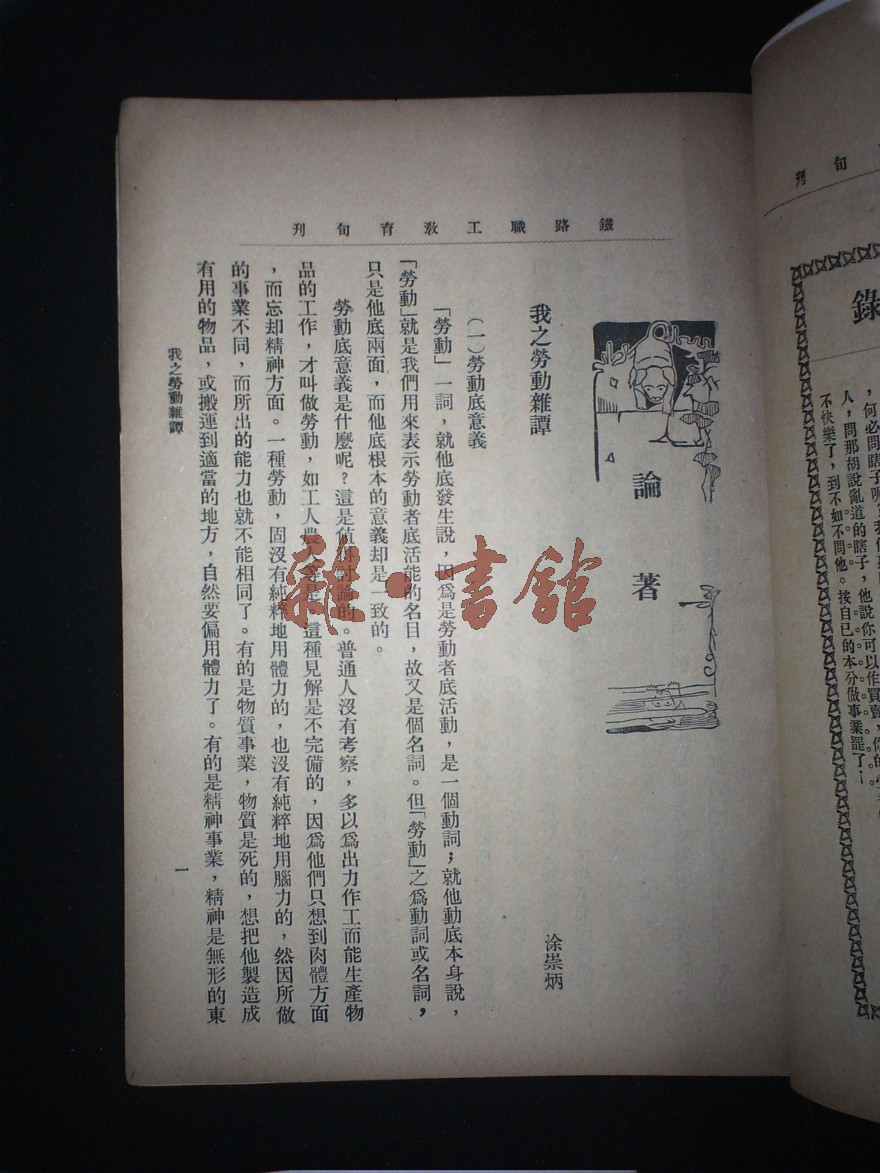 鐵路職工教育旬刊
論著
我之勞動雜譚
涂崇炳
(一)勞動底意義
「勞動」一詞,就他底發生說,因爲是勞動者底活動,是一個動詞;就他動底本身說,
「勞動」就是我們用來表示勞動者底活能的名目,故又是個名詞。但「勞動」之爲動詞或名詞,
只是他底兩面,而他底根本的意義却是一致的。
勞動底意義是什麼呢?這是值得討論的。普通人沒有考察,多以爲出力作工而能生產物
品的工作,才叫做勞動,如工人農人等是。這種見解是不完備的,因爲他們只想到肉體方面
,而忘却精神方面。一種勞動,固沒有純粹地用體力的,也沒有純粹地用腦力的,然因所做
的事業不同,而所出的能力也就不能相同了。有的是物質事業,物質是死的,想把他製造成
有用的物品,或搬運到適當的地方,自然要偏用體力了。有的是精神事業,精神是無形的東
我之勞動雜譚
一
旬刊
錄
,何必問瞎子呢
人,問那胡說亂道的瞎子,他說你可以作買賣,你的
不快樂了,到不如不問他。按自已的本分做事業罷了!
雜·書館